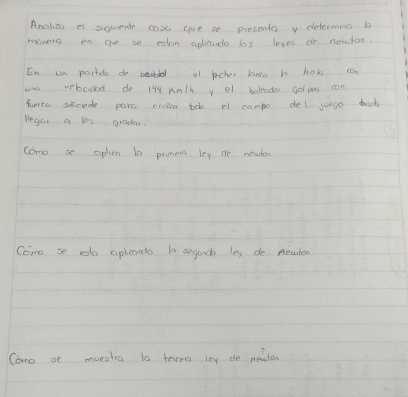 Analiza el siguiente caso que se presenta y determina la
manera en que se estan aplicando las leyes de newton.
En un partido de beisbol el picher lanza la bola con
una velocidad de 144 km/h y el bateador golpea con
fuerza suficiente para cruzar todo el campo del juego hasta
llegar a las gradas.
Cómo se aplica la primera ley de newton
Cómo se esta aplicando la segunda ley de Newton
Cómo se muestra la tercera ley de newton?